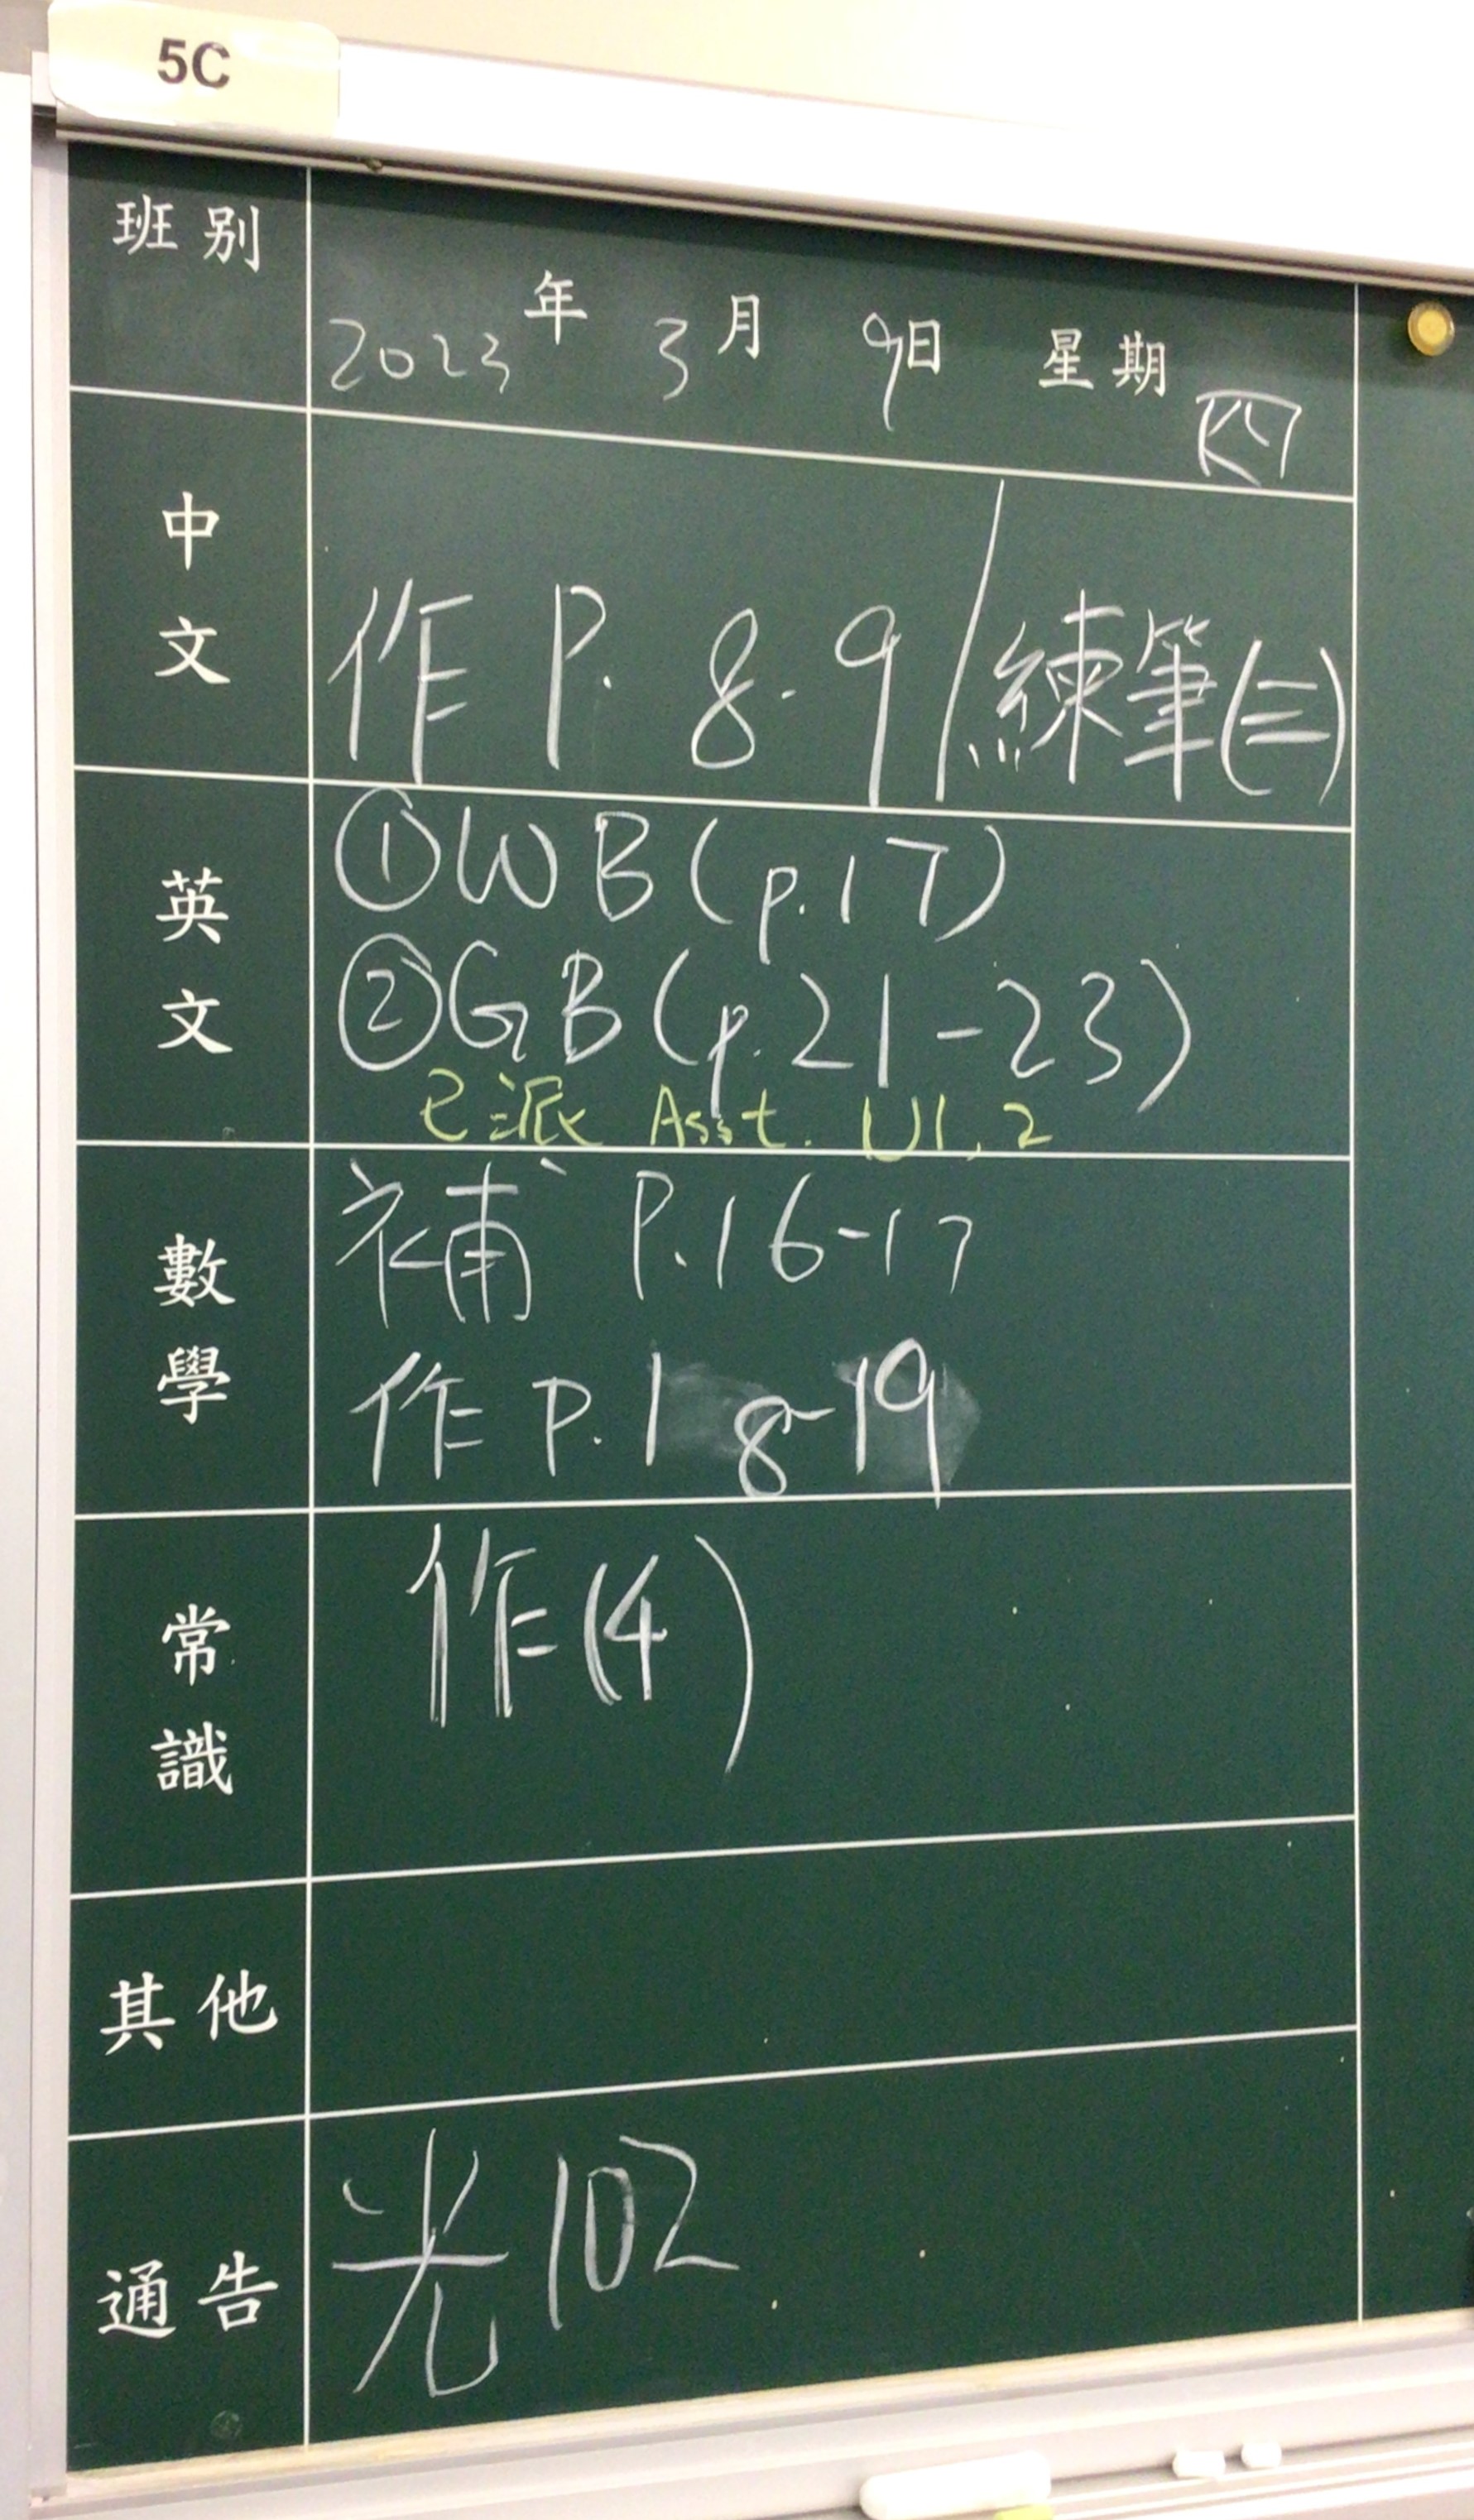 5C
班別
2023年 3月 9日 星期四
中文
作 P. 8-9/練筆(三)
英文
①WB(p.17)
②GB(p.21-23)
已派 Asst. U1, 2
數學
補 P.16-17
作 P.18-19
常識
作(4)
其他
通告
光102